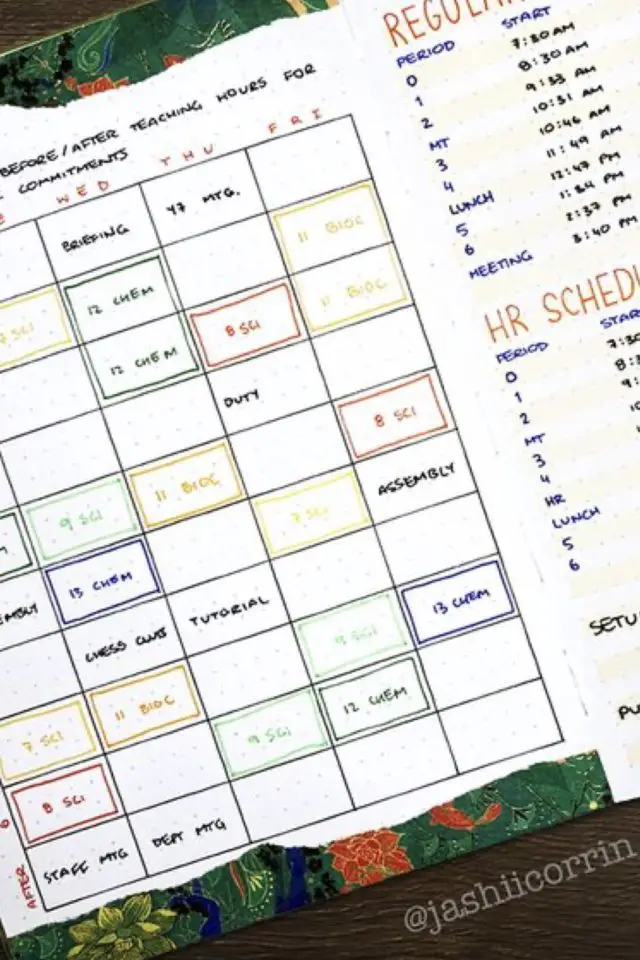 BEFORE/AFTER TEACHING HOURS FOR
COMMITMENTS
WED THU FRI
BRIEFING Y7 MTG.
7 SCI 12 CHEM 11 BIOC
12 CHEM 8 SCI 11 BIOC
DUTY
9 SCI 11 BIOC 8 SCI
13 CHEM 7 SCI ASSEMBLY
CHESS CLUB TUTORIAL
7 SCI 11 BIOC 9 SCI 13 CHEM
8 SCI 9 SCI 12 CHEM
AFTER STAFF MTG DEPT MTG
REGULAR
PERIOD START
0 7:30 AM
1 8:30 AM
2 9:33 AM
MT 10:31 AM
3 10:46 AM
4 11:49 AM
LUNCH 12:47 PM
5 1:34 PM
6 2:37 PM
MEETING 3:40 PM
HR SCHEDU
PERIOD START
0 7:30
1 8:3
2 9:
MT
3
4
HR
LUNCH
5
6
SETU
@jashiicorrin